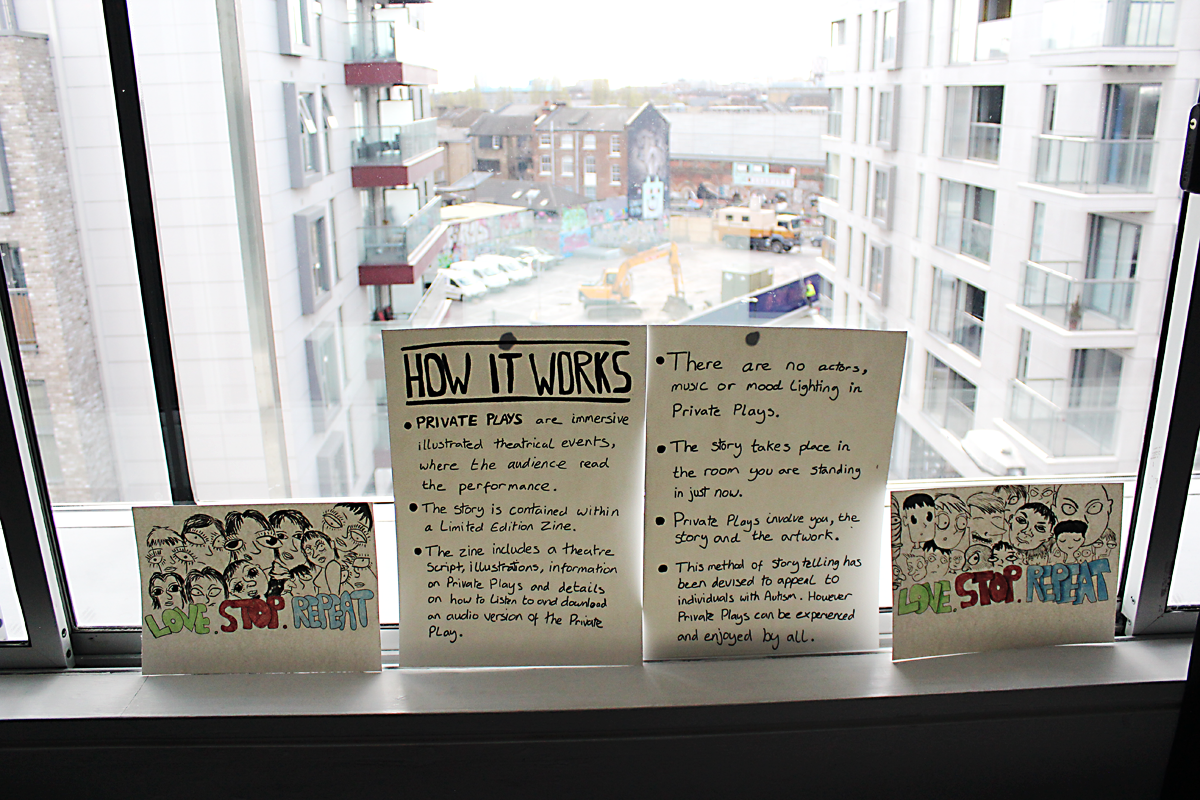 HOW IT WORKS
• PRIVATE PLAYS are immersive
illustrated theatrical events,
where the audience read
the performance.
• The story is contained within
a Limited Edition Zine.
• The zine includes a theatre
Script, illustrations, information
on Private Plays and details
on how to Listen to and download
an audio version of the Private
Play.
• There are no actors,
music or mood Lighting in
Private Plays.
• The story takes place in
the room you are standing
in just now.
• Private Plays involve you, the
story and the artwork.
• This method of storytelling has
been devised to appeal to
individuals with Autism. However
Private Plays can be experienced
and enjoyed by all.
LOVE. STOP. REPEAT
LOVE. STOP. REPEAT